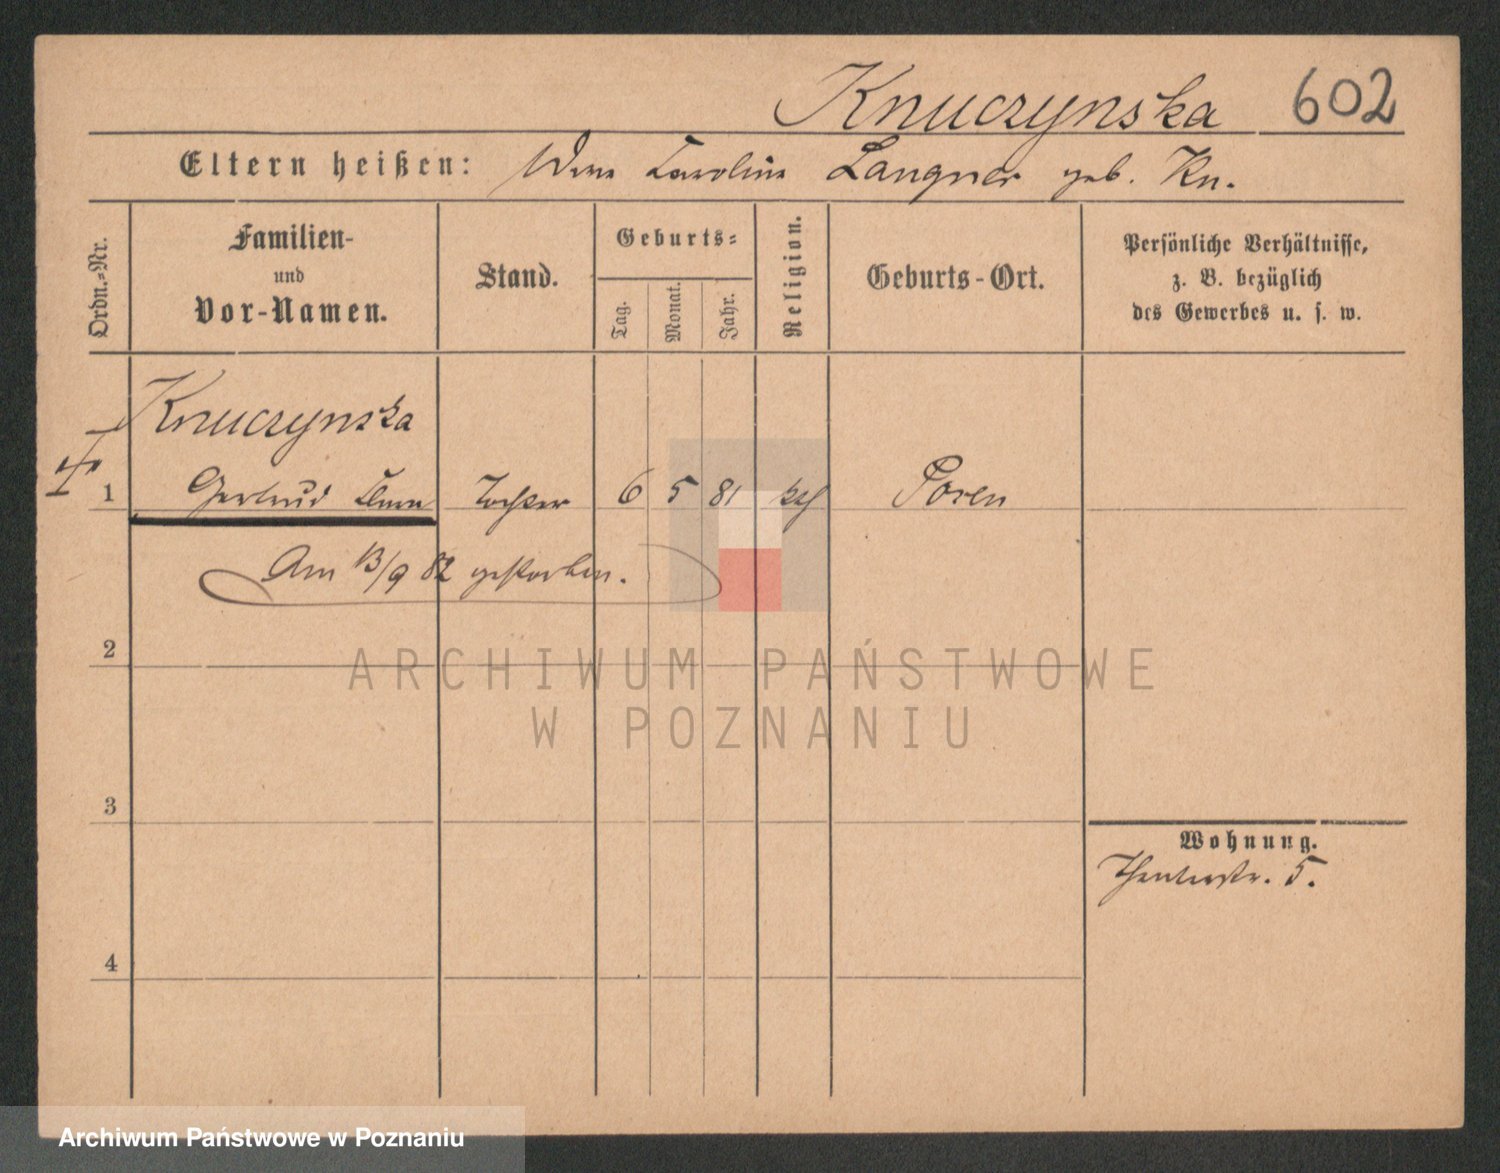 Knuczynska 602
Eltern heißen: Wwe Caroline Langner geb. Kn.
Ordn.-Nr.
Familien-
und
Vor-Namen.
Stand.
Geburts-
Tag.
Monat.
Jahr.
Religion.
Geburts-Ort.
Persönliche Verhältnisse,
z. B. bezüglich
des Gewerbes u. s. w.
Knuczynska
1 Gertrud Tochter 6 5 81 kth Posen
Am 13/9 82 gestorben.
2
ARCHIWUM PAŃSTWOWE
W POZNANIU
3
Wohnung.
Theaterstr. 5.
4
Archiwum Państwowe w Poznaniu